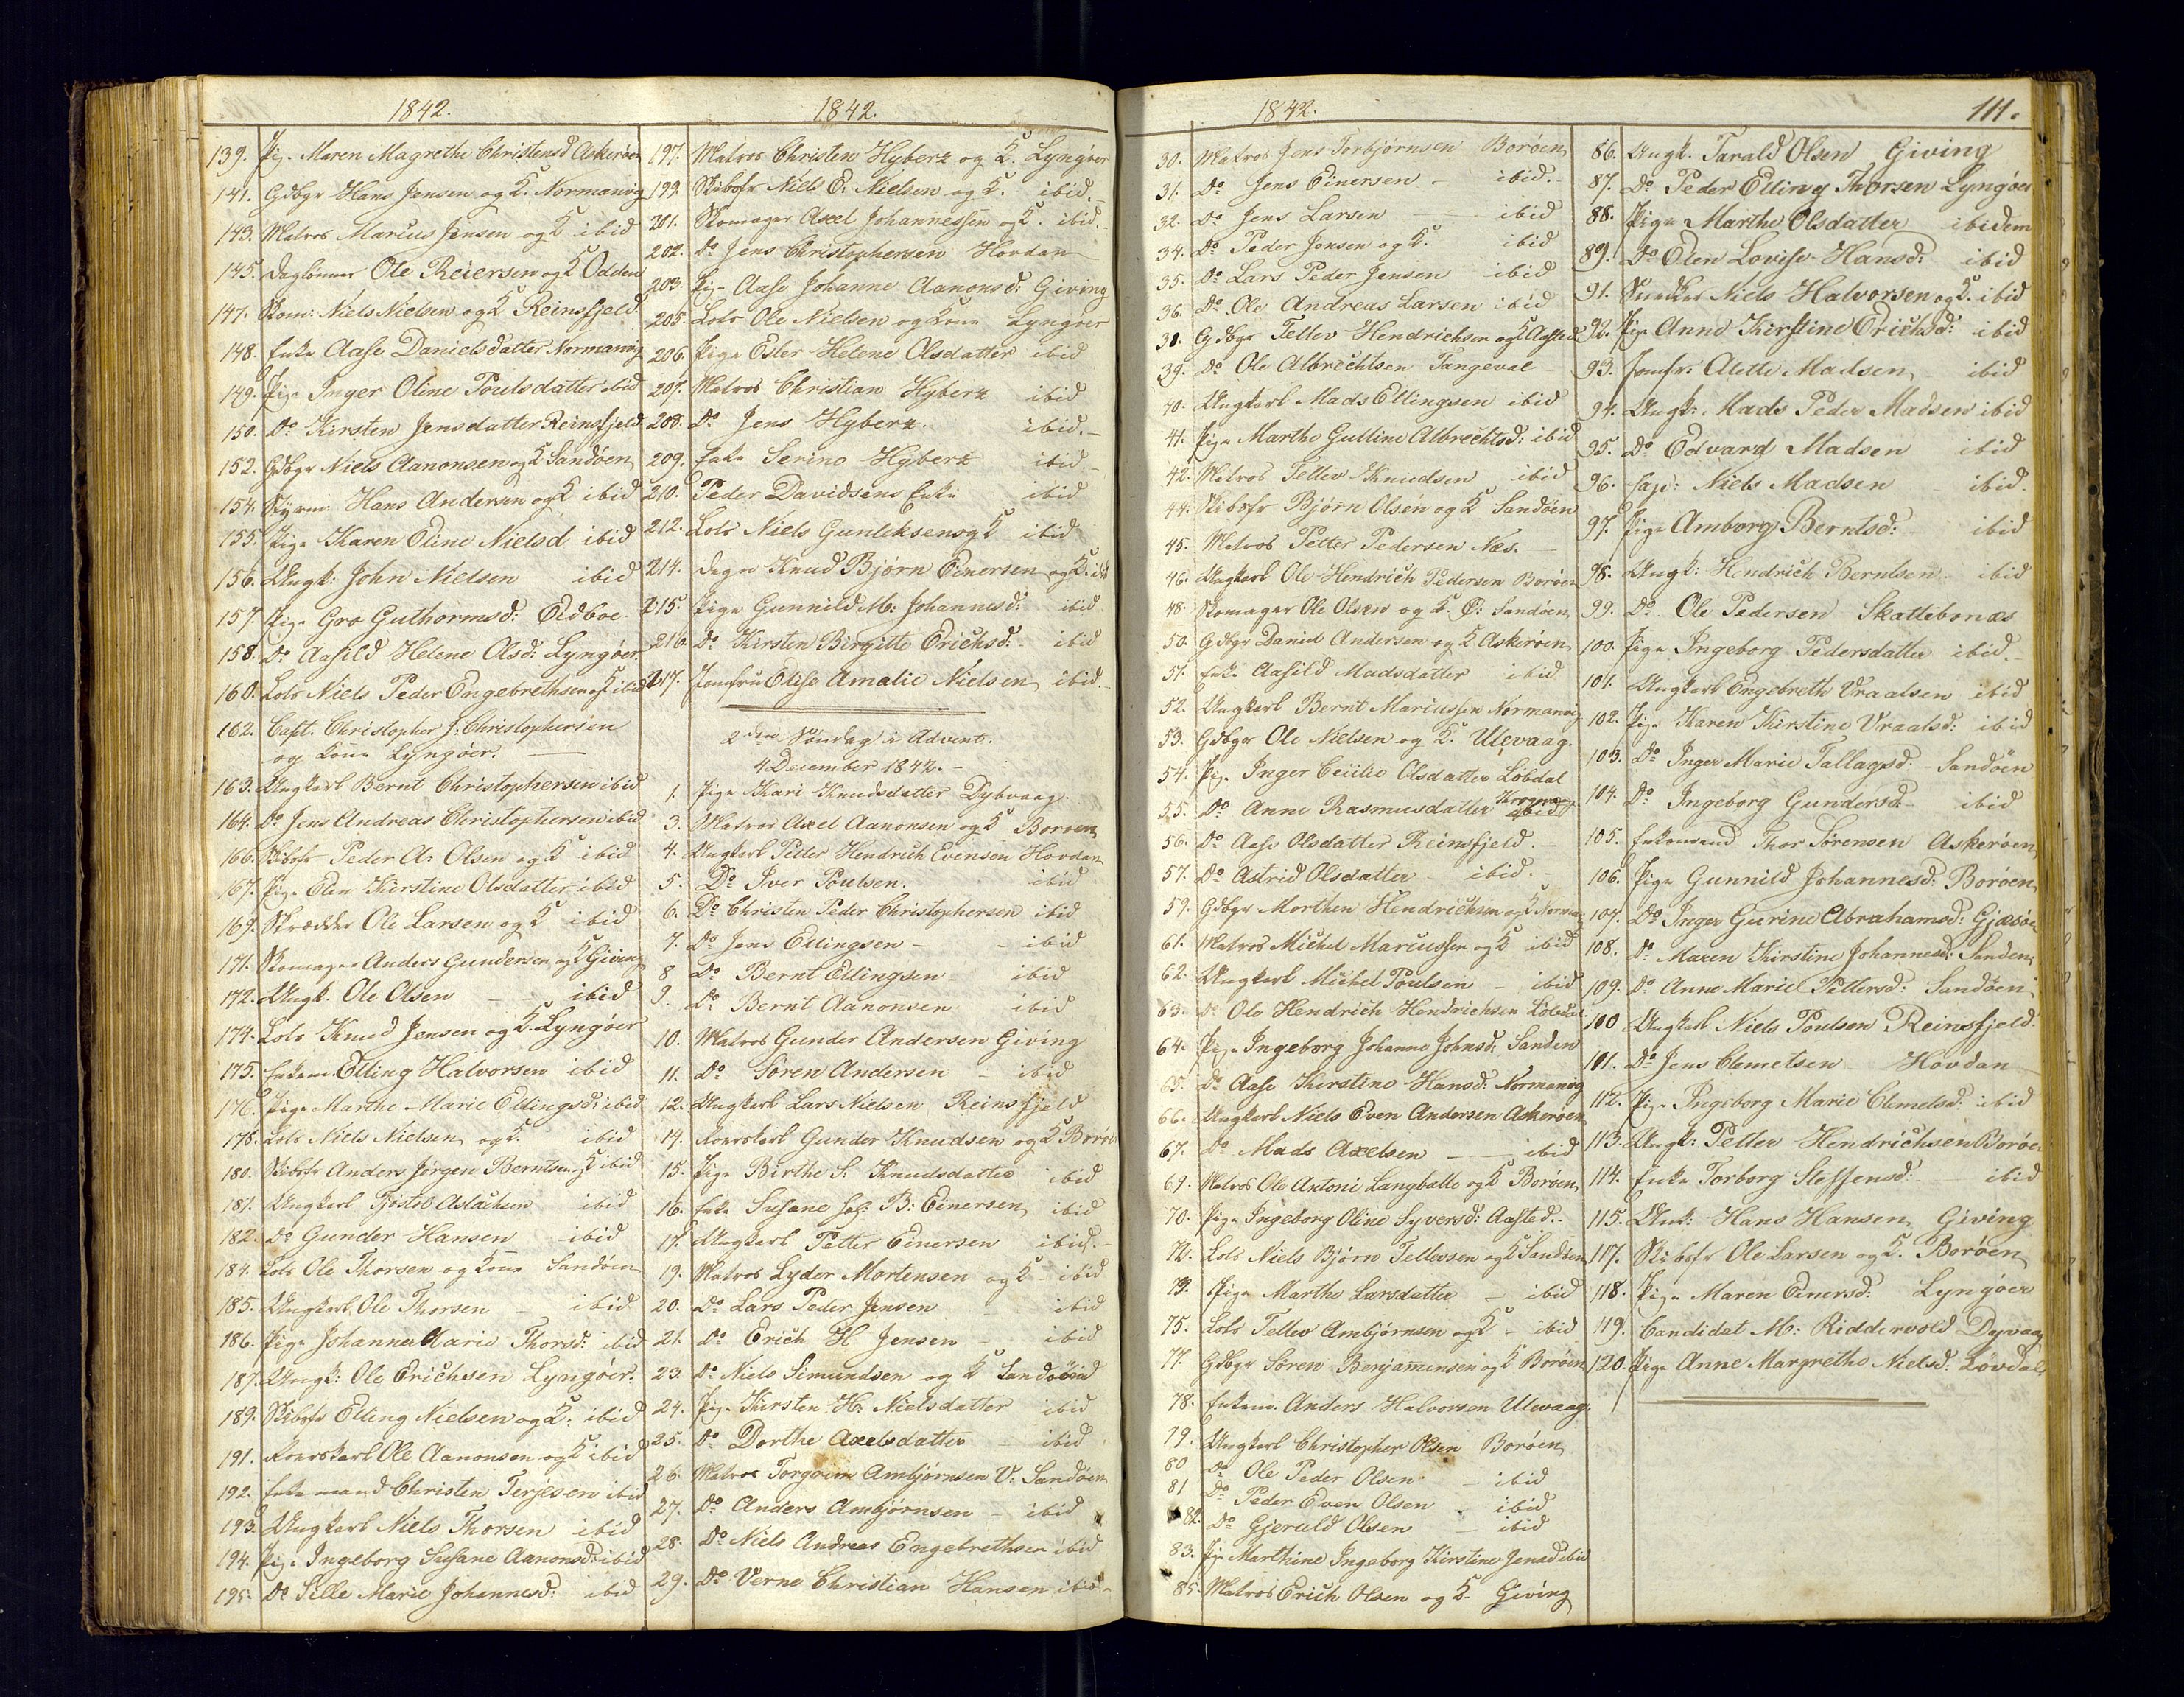 1842.
139. Pige Maren Magrethe Christensd Askerøen
141. Gdbgr Hans Jensen og K. Normanvig
143. Matros Marcus Jensen og K ibid
145. Daglönner Ole Reiersen og K Odden
147. Skom: Niels Nielsen og K Reinsfjeld
148. Enke Aase Danielsdatter Normanvig
149. Pige Inger Oline Poulsdatter ibid
150. Do Kirsten Jensdatter Reinsfjeld
152. Gdbgr Niels Aanonsen og K Sandöen
154. Styrm: Hans Andersen og K ibid
155. Pige Karen Oline Nielsd ibid
156. Ungk: John Nielsen ibid
157. Pige Gro Guthormsd: Eidboe
158. Do Aasild Helene Olsd: Lyngöer
160. Lods Niels Peder Engebrethsen og K ibid
162. Capt. Christopher J: Christophersen
og Kone Lyngöer.
163. Ungkarl Bernt Christophersen ibid
164. Do Jens Andreas Christophersen ibid
166. Skibsfr Peder A: Olsen og K ibid
167. Pige Elen Kirstine Olsdatter ibid
169. Skrædder Ole Larsen og K ibid
171. Skomager Anders Gundersen og K Giving
172. Ungk. Ole Olsen - - ibid
174. Lods Knud Jensen og K. Lyngöer
175. Enkem. Elling Halvorsen ibid
176. Pige Marthe Marie Ellingsd: ibid
178. Lods Niels Nielsen og K. ibid
180. Skibsfr Anders Jörgen Berntsen og K ibid
181. Ungkarl Tjöstol Aslachsen ibid
182. Do Gunder Hansen ibid
184. Lods Ole Thorsen og Kone Sandöen
185. Ungkarl Ole Thorsen - ibid
186. Pige Johanne Marie Thorsd: ibid
187. Ungk: Ole Erichsen Lyngöer.
189. Skibsfr Elling Nielsen og K: ibid
191. Konekarl Ole Aanonsen og K ibid
192. Enkemand Christen Terjesen ibid
193. Ungkarl Niels Thorsen ibid
194. Pige Ingeborg Susane Aanonsd: ibid
195. Do Sille Marie Johannesd: ibid
1842.
197. Matros Christen Hyberz og K. Lyngöer
199. Skibsfr Niels E. Nielsen og K. ibid.
201. Skomager Axel Johannessen og K. ibid.
202. Do Jens Christophersen Hovdan
203. Pige Aase Johanne Aanonsd: Giving
205. Lods Ole Nielsen og Kone Lyngöer
206. Pige Ester Helene Olsdatter ibid
207. Matros Christian Hyberz ibid
208. Do Jens Hyberz. ibid.
209. Enke Serine Hyberz ibid.
210. Peder Davidsens Enke ibid
212. Lods Niels Gunleksen og K ibid
214. Knud Björn Einersen og K. ibid
215. Pige Gunnild M: Johannesd: ibid
216. Do Kirsten Birgitte Erichsd: ibid
217. Jomfru Elise Amalie Nielsen ibid.
2den Söndag i Advent.
4 December 1842.
1. Pige Kari Knudsdatter Dybvaag.
3. Matros Axel Aanonsen og K Boröen
4. Ungkarl Peder Hendrich Evensen Hovdan
5. Do Iver Poulsen. ibid
6. Do Christen Peder Christophersen ibid
7. Do Jens Ellingsen - - ibid
8 Do Bernt Ellingsen - ibid
9. Do Bernt Aanonsen ibid
10. Matros Gunder Andersen Giving
11. Do Sören Andersen - ibid
12. Ungkarl Lars Nielsen Reinsfjeld
14. Konekarl Gunder Knudsen og K Boröe
15. Pige Birthe S. Knudsdatter ibid
16. Enke Susane B: Einersen ibid
17. Ungkarl Petter Einersen ibid.
19. Matros Lyder Mortensen og K - ibid
20. Do Lars Peder Jensen ibid
21. Do Erich H Jensen - ibid
23. Do Niels Simundsen og K Sandöen
24. Pige Kirsten H: Nielsdatter ibid
25. Do Dorthe Axelsdatter - ibid
26. Matros Torgrim Ambjörnsen V: Sandöen
27. Do Anders Ambjörnsen - ibid
28. Do Niels Andreas Engebrethsen ibid
29. Do Verne Christian Hansen ibid
1842.
30. Matros Jens Torbjörnsen Boröen
31. Do Jens Einersen - ibid.
32. Do Jens Larsen ibid
34. Do Peder Jensen og K. ibid
35. Do Lars Peder Jensen ibid
36. Do Ole Andreas Larsen ibid
38. Gdbgr Tellev Hendrichsen og K Aasted
39. Do Ole Albrechtsen Tangevae
40. Ungkarl Mads Ellingsen ibid
41. Pige Marthe Gulline Albrechtsd: ibid
42. Matros Tellev Knudsen ibid
44. Skibsfr Björn Olsen og K Sandöen
45. Matros Petter Pedersen Næs.
46. Ungkarl Ole Hendrich Pedersen Boröen
48. Skomager Ole Olsen og K. Ø: Sandöen
50. Gdbgr Daniel Andersen og K Askeröen
51. Enke Aasild Madsdatter ibid
52. Ungkarl Bernt Mariussen Normanvig
53. Gdbgr Ole Nielsen og K. Ulevaag.
54. Pige Inger Cecilie Olsdatter Löbdal
55. Do Anne Rasmusdatter
56. Do Aase Olsdatter Reinsfjeld.
57. Do Astrid Olsdatter ibid.
59. Gdbgr Morthen Hendrichsen og K Norman
61. Matros Michel Marcussen og K ibid
62. Ungkarl Michel Poulsen - ibid
63. Do Ole Hendrich Hendrichsen Löbdal
64. Pige Ingeborg Johanne Johnsd: Sanden
65. Do Aase Kirstine Hansd: Normanvig
66. Ungkarl Niels Even Andersen Askeröen
67. Do Mads Axelsen - ibid
69. Matros Ole Antoni Langballe og K Boröen
70. Pige Ingeborg Oline Syversd: Aasted.
72. Lods Niels Björn Tellevsen og K Sandöen
73. Pige Marthe Larsdatter - ibid
75. Lods Tellev Ambjörnsen og K - ibid
77. Gdbgr Sören Benjaminsen og K Boröen
78. Enkem. Anders Halvorsen Ulevaag.
79. Ungkarl Christopher Olsen Boröen
80 Do Ole Peder Olsen - ibid
81 Do Peder Even Olsen - ibid
82. Do Gjeruld Olsen - ibid
83. Pige Marthine Ingeborg Kirstine Jensd ibid
85. Matros Erich Olsen og K Giving
111.
86. Ungk. Tarald Olsen Giving
87. Do Peder Elling Thorsen Lyngöer
88. Pige Marthe Olsdatter ibidem
89. Do Elen Lovise Hansd: ibid
91. Snedker Niels Halvorsen og K. ibid
92. Pige Anne Kirstine Erichsd: ibid
93. Jomfr: Alette Madsen ibid
94. Ungk: Mads Peder Madsen ibid
95. Do Edvard Madsen ibid
96. Cap: Niels Madsen - ibid.
97. Pige Amborg Berntsd: ibid
98. Ungk: Hendrich Berntsen ibid
99. Do Ole Pedersen Skattebonæs
100 Pige Ingeborg Pedersdatter ibid.
101. Ungkarl Engebreth Vraalsen ibid
102. Pige Karen Kirstine Vraalsd: ibid
103. Do Inger Marie Tallagsd: Sandöen
104. Do Ingeborg Gundersd: ibid
105. Enkemand Thor Sörensen Askeröen
106. Pige Gunnild Johannesd: Boröen
107. Do Inger Gurine Abrahamsd: Gjæsöe
108. Do Maren Kirstine Johannesd: Sanden
109. Do Anne Marie Pettersd: Sandöen
100 Ungkarl Niels Poulsen Reinsfjeld.
111. Do Jens Clemetsen Hovdan
112. Pige Ingeborg Marie Clemetsd: ibid
113. Ungk: Petter Hendrichsen Boröe
114. Enke Torborg Steffensd: - ibid
115. Unk: Hans Hansen Giving
117. Skibsfr Ole Larsen og K. Boröen
118. Pige Maren Einersd: Lyngöer
119. Candidat M: Riddervold Dyvaag
120. Pige Anne Margrethe Nielsd: Lövdal